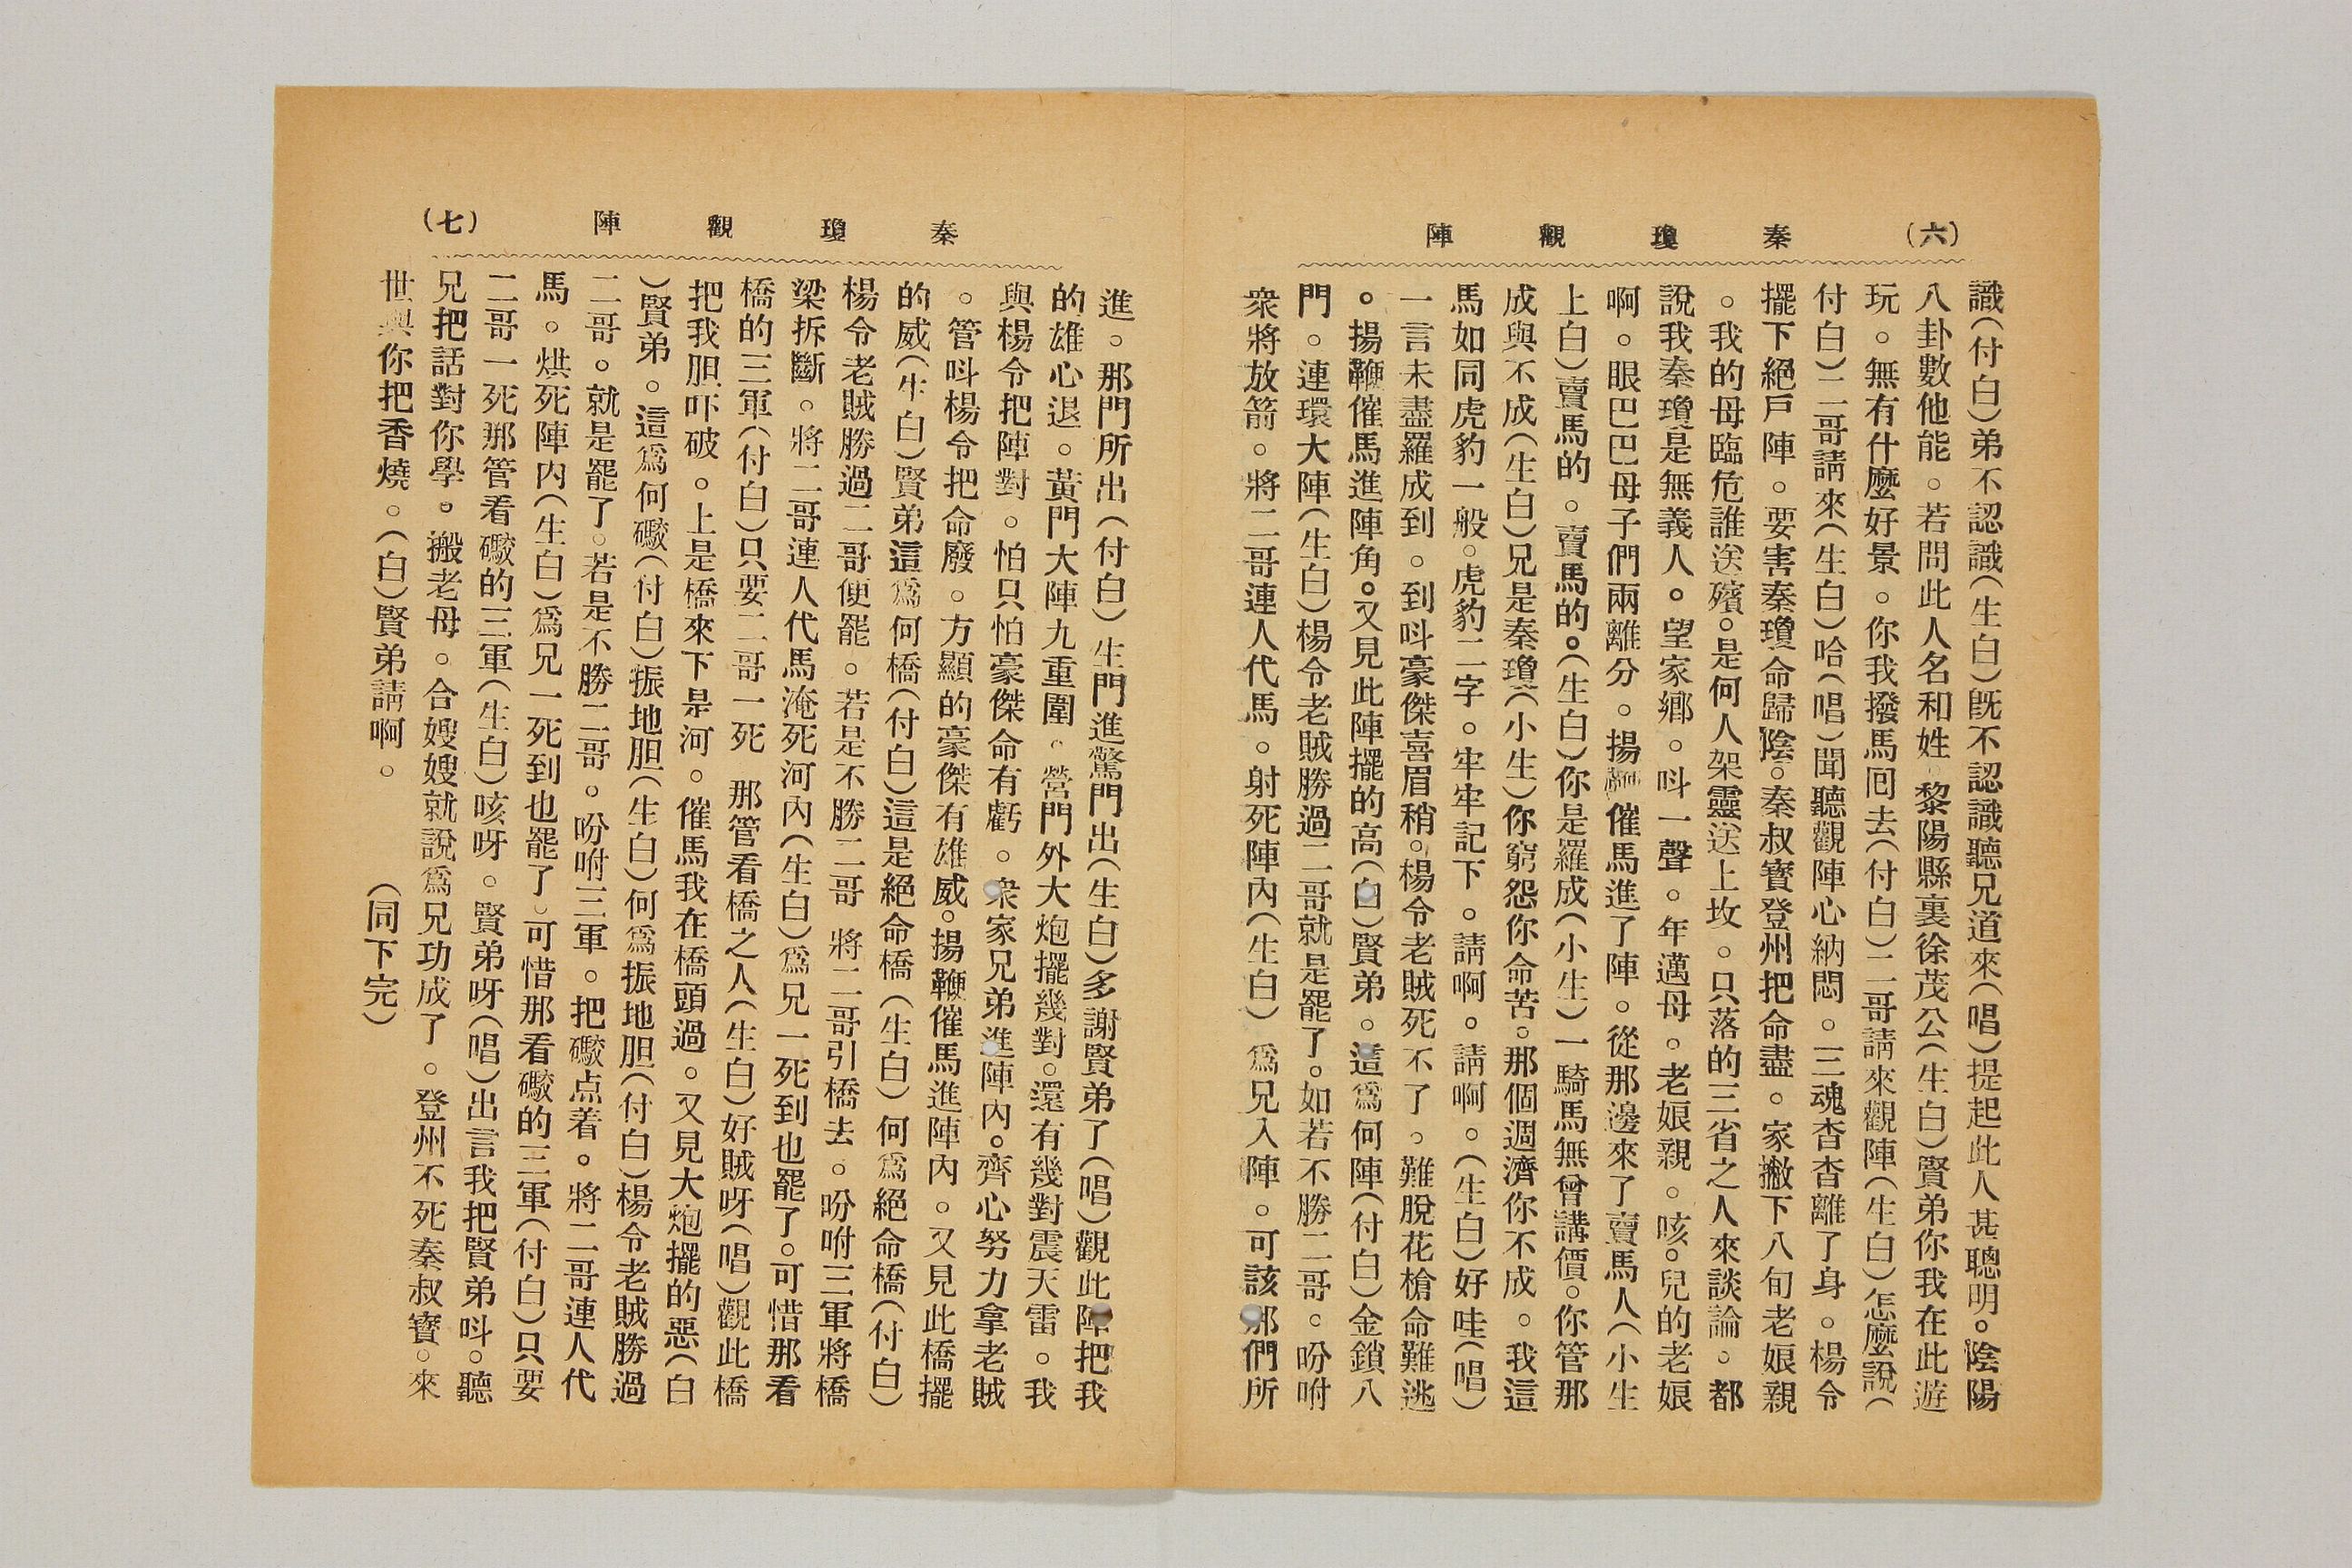 (六)
秦瓊觀陣
識(付白)弟不認識(生白)旣不認識聽兄道來(唱)提起此人甚聰明。陰陽
八卦數他能。若問此人名和姓 黎陽縣裏徐茂公(生白)賢弟你我在此遊
玩。無有什麼好景。你我撥馬囘去(付白)二哥請來觀陣(生白)怎麼說(
付白)二哥請來(生白)哈(唱)聞聽觀陣心納悶。三魂杳杳離了身。楊令
擺下絕戶陣。要害秦瓊命歸陰。秦叔寳登州把命盡。家撇下八旬老娘親
。我的母臨危誰送殯。是何人架靈送上坟。只落的三省之人來談論。都
說我秦瓊是無義人。望家鄉。呌一聲。年邁母。老娘親。咳。兒的老娘
啊。眼巴巴母子們兩離分。揚鞭催馬進了陣。從那邊來了賣馬人(小生
上白)賣馬的。賣馬的。(生白)你是羅成(小生)一騎馬無曾講價。你管那
成與不成(生白)兄是秦瓊(小生)你窮怨你命苦。那個週濟你不成。我這
馬如同虎豹一般。虎豹二字。牢牢記下。請啊。請啊。(生白)好哇(唱)
一言未盡羅成到。到呌豪傑喜眉稍。楊令老賊死不了。難脫花槍命難逃
。揚鞭催馬進陣角。又見此陣擺的高(白)賢弟。這爲何陣(付白)金鎖八
門。連環大陣(生白)楊令老賊勝過二哥就是罷了。如若不勝二哥。吩咐
衆將放箭。將二哥連人代馬。射死陣內(生白)爲兄入陣。可該那們所
(七)
秦瓊觀陣
進。那門所出(付白)生門進驚門出(生白)多謝賢弟了(唱)觀此陣把我
的雄心退。黃門大陣九重圍。營門外大炮擺幾對。還有幾對震天雷。我
與楊令把陣對。怕只怕豪傑命有虧。衆家兄弟進陣內。齊心努力拿老賊
。管呌楊令把命廢。方顯的豪傑有雄威。揚鞭催馬進陣內。又見此橋擺
的威(生白)賢弟這爲何橋(付白)這是絕命橋(生白)何爲絕命橋(付白)
楊令老賊勝過二哥便罷。若是不勝二哥 將二哥引橋去。吩咐三軍將橋
梁拆斷。將二哥連人代馬淹死河內(生白)爲兄一死到也罷了。可惜那看
橋的三軍(付白)只要二哥一死 那管看橋之人(生白)好賊呀(唱)觀此橋
把我胆吓破。上是橋來下是河。催馬我在橋頭過。又見大炮擺的惡(白
)賢弟。這爲何礮(付白)振地胆(生白)何爲振地胆(付白)楊令老賊勝過
二哥。就是罷了。若是不勝二哥。吩咐三軍。把礮点着。將二哥連人代
馬。烘死陣內(生白)爲兄一死到也罷了。可惜那看礮的三軍(付白)只要
二哥一死那管看礮的三軍(生白)咳呀。賢弟呀(唱)出言我把賢弟呌。聽
兄把話對你學。搬老母。合嫂嫂就說爲兄功成了。登州不死秦叔寳。來
世與你把香燒。(白)賢弟請啊。 (同下完)